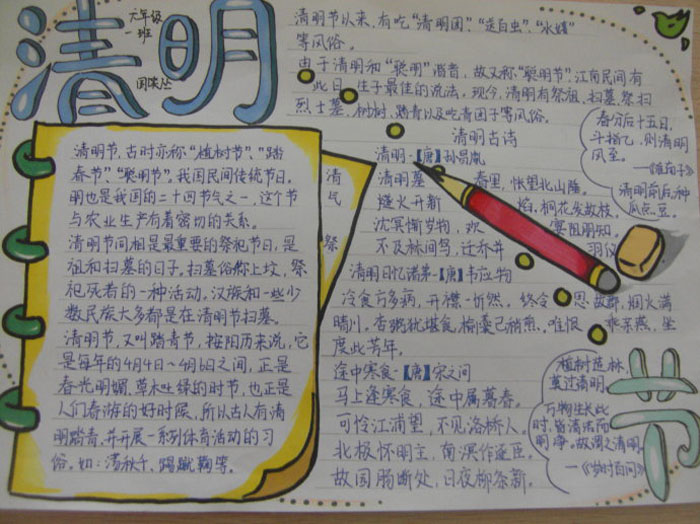 清明
六年级
班
国陕丛
清明节以来,有吃“清明团”、“送百虫”、“水嬉”
等风俗。
由于清明和“聪明”谐音,故又称“聪明节”。江南民间有
此日生子最佳的说法。现今,清明有祭祖、扫墓、祭扫
烈士墓、植树、踏青以及吃青团子等风俗。
清明古诗
清明·【唐】孙昌胤
清明暮春里,怅望北山陲。
燧火开新焰,桐花发故枝。
沈冥惭岁物,欢宴阻朋知。
不及林间鸟,迁乔并羽仪
清明日忆诸弟·【唐】韦应物
冷食方多病,开襟一忻然。终令思故郡,烟火满
晴川。杏粥犹堪食,榆羹已稍煎。唯恨乖亲燕,坐
度此芳年。
途中寒食·【唐】宋之问
马上逢寒食,途中属暮春。
可怜江浦望,不见洛桥人。
北极怀明主,南溟作逐臣。
故园肠断处,日夜柳条新。
春分后十五日,
斗指乙,则清明
风至。
—《淮南子》
清明前后,种
瓜点豆。
植树造林,
莫过清明。
万物生长此
时,皆清洁而
明净。故谓之清明。
—《岁时百问》
节
清明节,古时亦称“植树节”、“踏
春节”、“聪明节”。我国民间传统节日。
明也是我国的二十四节气之一,这个节
与农业生产有着密切的关系。
清明节同相是最重要的祭祀节日,是
祖和扫墓的日子。扫墓俗称上坟,祭
祀死者的一种活动。汉族和一些少
数民族大多都是在清明节扫墓。
清明节,又叫踏青节,按阳历来说,它
是每年的4月4日~4月6日之间,正是
春光明媚,草木吐绿的时节,也正是
人们春游的好时候,所以古人有清
明踏青,并开展一系列体育活动的习
俗。如:荡秋千、踢蹴鞠等。
清
民
祭